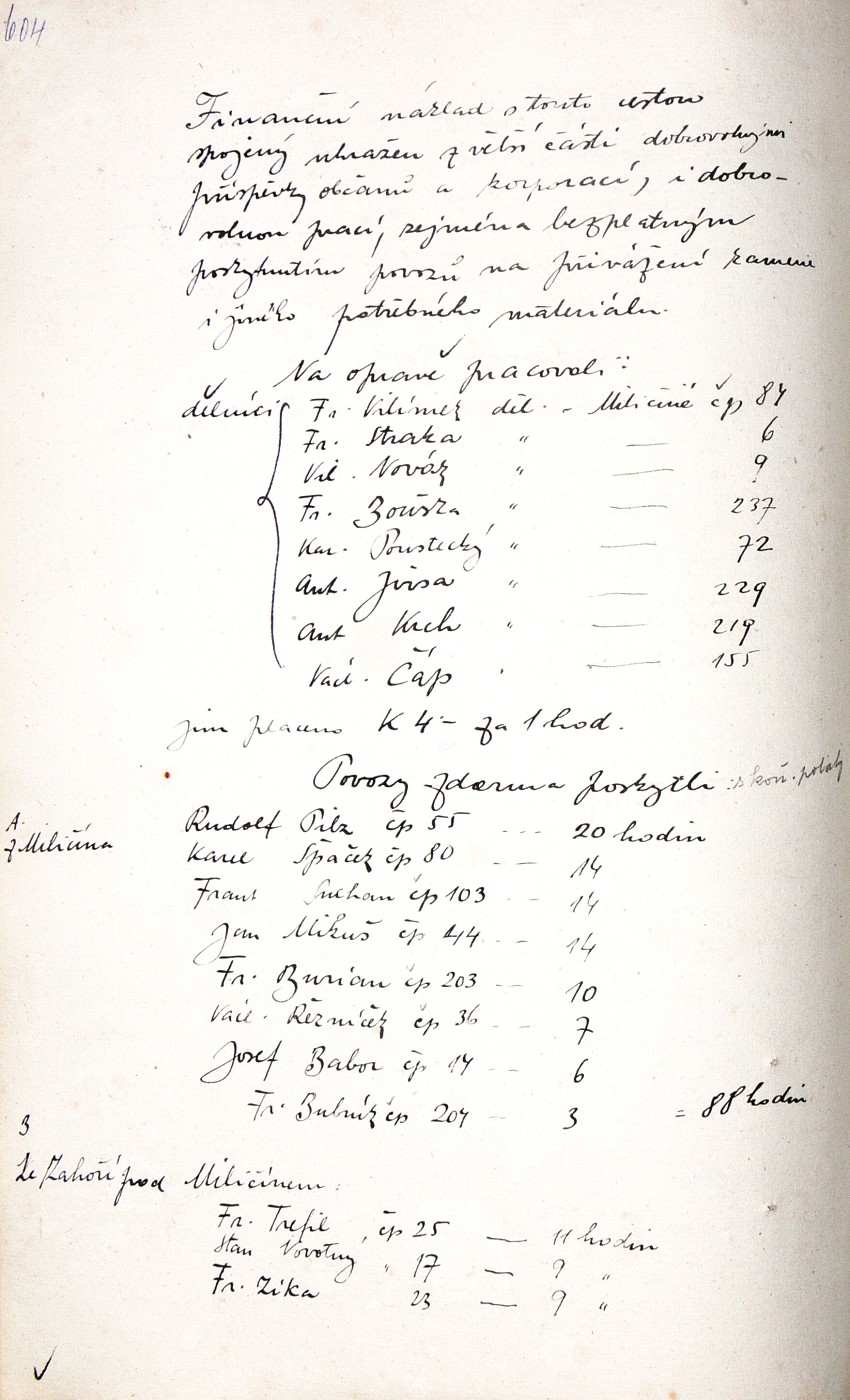 604
Finanční náklad s touto cestou
spojený uhražen z větší části dobrovolnými
příspěvky občanů a korporací, i dobro-
volnou prací, zejména bezplatným
poskytnutím povozů na přivážení kamene
i jiného potřebného materiálu.
Na opravě pracovali:
dělníci Fr. Vilímek děl. Miličíně čp 84
Fr. Straka " — 6
Vil. Novák " — 9
Fr. Bouška " — 237
Kar. Poustecký " — 72
Ant. Jirsa " — 229
Ant Krch " — 219
Václ. Čáp " — 155
jim placeno K 4 - za 1 hod.
Povozy zdarma poskytli: s koň. potahy
A.
z Miličína
Rudolf Pilz čp 55 --- 20 hodin
Karel Špaček čp 80 -- 14
Frant Suchan čp 103 -- 14
Jan Mikuš čp 44 -- 14
Fr. Burian čp 203 -- 10
Václ. Řezníček čp 36 -- 7
Josef Babor čp 14 -- 6
Fr. Bubník čp 204 -- 3 = 88 hodin
B
Ze Záhoří pod Miličínem:
Fr. Trefil, čp 25 — 11 hodin
Stan Novotný " 17 — 9 "
Fr. Zíka 23 — 9 "